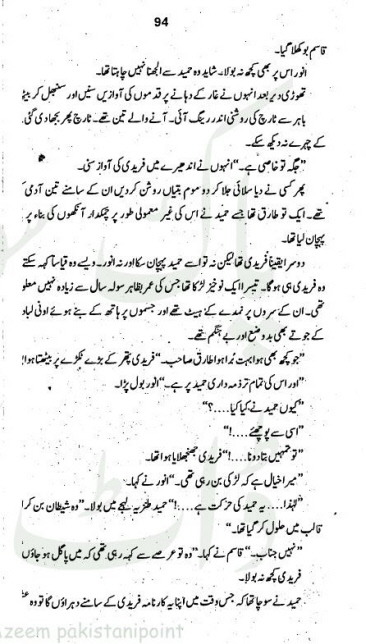 94
قاسم بوکھلا گیا۔
انور اس پر بھی کچھ نہ بولا۔ شاید وہ حمید سے الجھنا نہیں چاہتا تھا۔
تھوڑی دیر بعد انہوں نے غار کے دہانے پر قدموں کی آوازیں سنیں اور سنبھل کر بیٹھ
باہر سے ٹارچ کی روشنی اندر رینگ آئی۔ آنے والے تین تھے۔ ٹارچ پھر بجھا دی گئی
کے چہرے نہ دیکھ سکے۔
”جگہ تو خاصی ہے۔“ انہوں نے اندھیرے میں فریدی کی آواز سنی۔
پھر کسی نے دیا سلائی جلا کر دو موم بتیاں روشن کر دیں ان کے سامنے تین آدمی
تھے۔ ایک تو طارق تھا جسے حمید نے اس کی غیر معمولی طور پر چمکدار آنکھوں کی بناء پر
پہچان لیا تھا۔
دوسرا یقیناً فریدی تھا لیکن نہ تو اسے حمید پہچان سکا اور نہ انور۔ ویسے وہ قیاساً کہہ سکتے
وہ فریدی ہی ہوگا۔ تیسرا ایک نوخیز لڑکا تھا جس کی عمر بظاہر سولہ سال سے زیادہ نہیں معلو
تھی۔ ان کے سروں پر نمدے کے ہیٹ تھے اور جسموں پر ہاتھ کے بنے ہوئے اونی لباد
کے جوتے بھی بدوضع اور بے ہنگم تھے۔
”جو کچھ بھی ہوا بہت برا ہوا طارق صاحب۔“ فریدی پتھر کے بڑے ٹکڑے پر بیٹھتا ہوا
”اور اس کی تمام تر ذمہ داری حمید پر ہے۔“ انور بول پڑا۔
”کیوں حمید نے کیا کیا....؟“
”اسی سے پوچھئے....!“
”تو تمہیں بتا دونا....!“ فریدی جھنجھلایا ہوا تھا۔
”میرا خیال ہے کہ لڑکی بن رہی تھی۔“ انور نے کہا۔
”لہٰذا.... یہ حمید کی حرکت ہے....!“ حمید طنزیہ لہجے میں بولا۔ ”وہ شیطان بن کر ا
قالب میں حلول کر گیا تھا۔“
”نہیں جناب۔“ قاسم نے کہا۔ ”وہ تو عرصے سے کہہ رہی تھی کہ میں پاگل ہو جاؤں
فریدی کچھ نہ بولا۔
حمید نے سوچا تھا کہ جس وقت میں اپنا یہ کارنامہ فریدی کے سامنے دہراؤں گا تو وہ
Azeem pakistanipoint